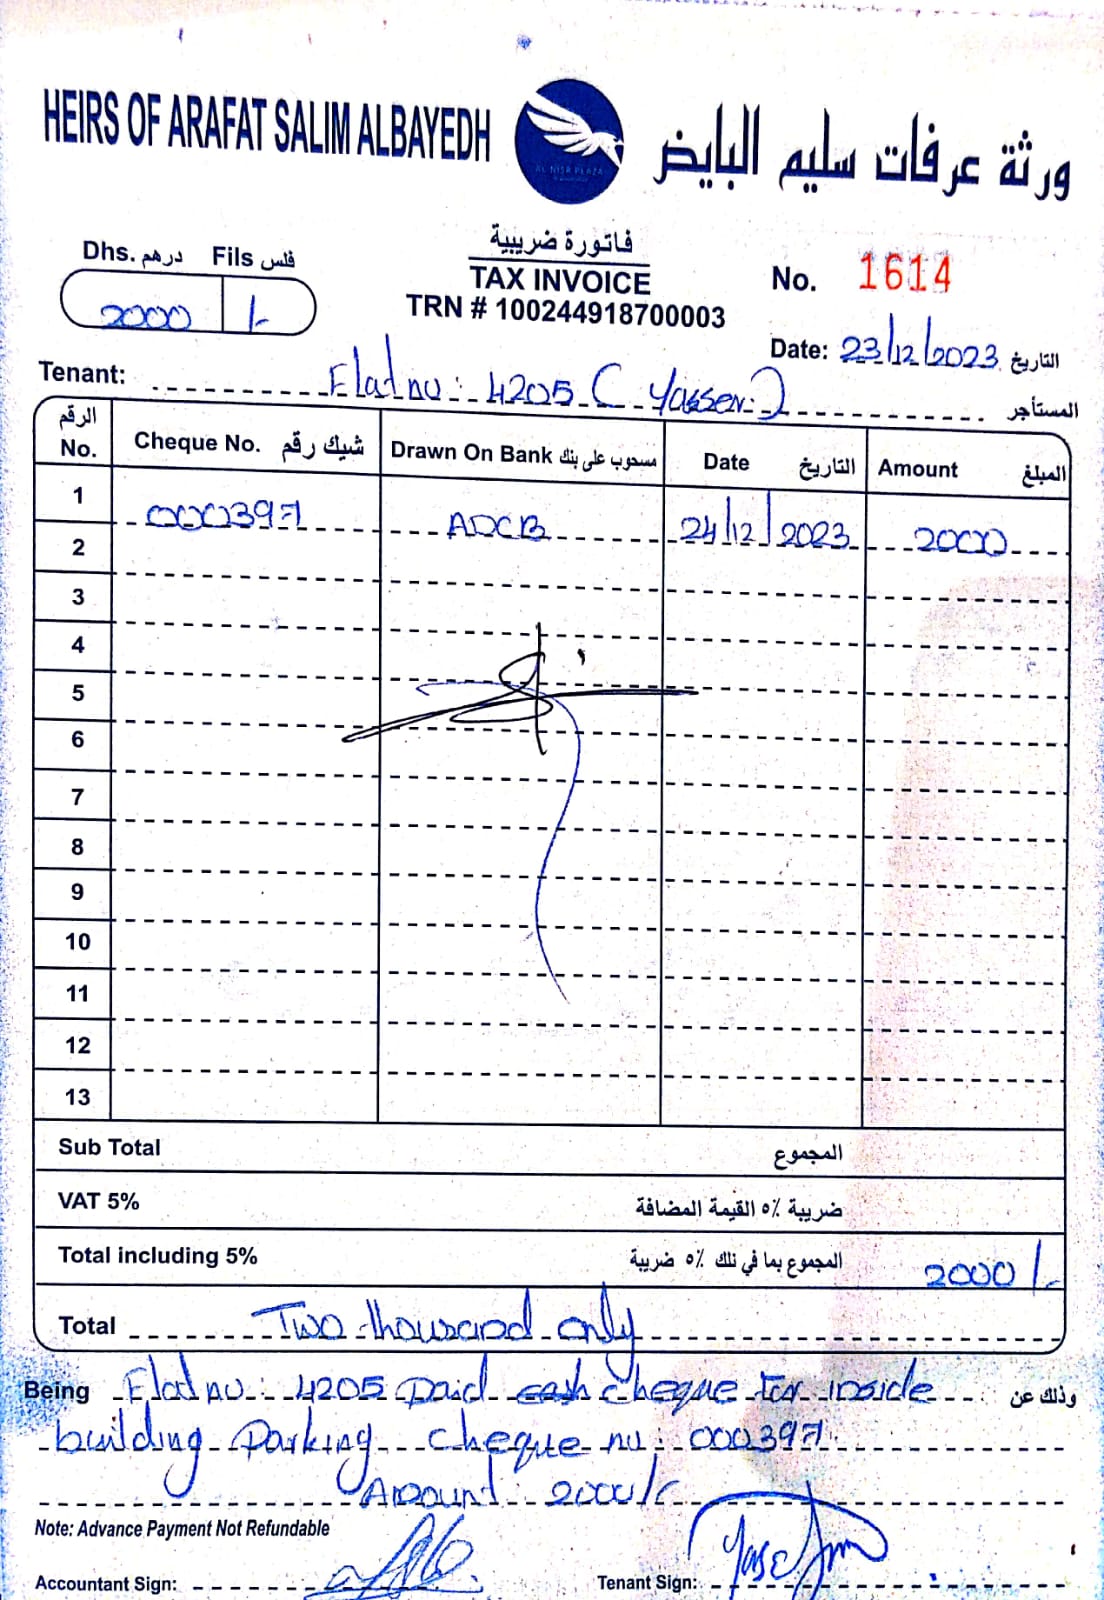 HEIRS OF ARAFAT SALIM ALBAYEDH
AL NISR PLAZA
ورثة عرفات سليم البايض
فاتورة ضريبية
TAX INVOICE
TRN # 100244918700003
Dhs. درهم Fils فلس
2000 /-
No. 1614
Date: 23/12/2023 التاريخ
Tenant: Flat no: 4205 ( Yassen ) المستأجر
الرقم No. Cheque No. شيك رقم Drawn On Bank مسحوب على بنك Date التاريخ Amount المبلغ
1 000397 ADCB 24/12/2023 2000
2
3
4
5
6
7
8
9
10
11
12
13
Sub Total المجموع
VAT 5% ضريبة ٥٪ القيمة المضافة
Total including 5% المجموع بما في ذلك ٥٪ ضريبة 2000/-
Total Two thousand only
Being Flat no: 4205 paid cash cheque for inside وذلك عن
building Parking cheque no: 000397
Amount: 2000/-
Note: Advance Payment Not Refundable
Accountant Sign: Tenant Sign: